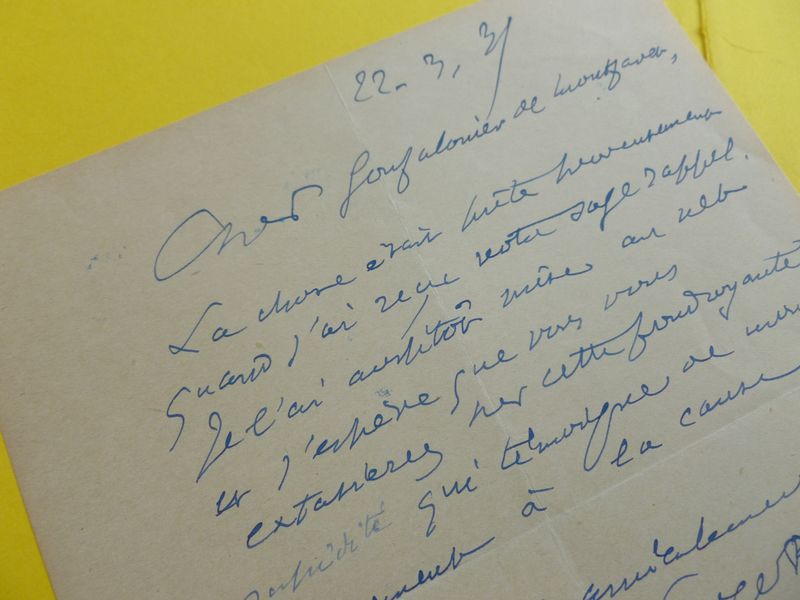 22. 3. 31
Cher Gonfalonier de Montfavet,
La chose était prête heureusement
quand j'ai reçu votre sage rappel.
Je l'ai aussitôt mise au net
et j'espère que vous vous
extasierez par cette foudroyante
rapidité qui témoigne de mon
à la cause
amicalement